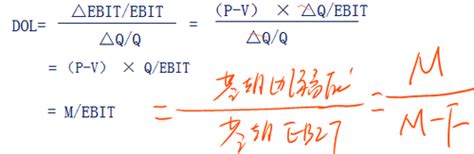 DOL= △EBIT/EBIT / △Q/Q = (P-V) × △Q/EBIT / △Q/Q
= (P-V) × Q/EBIT
= M/EBIT = 基期 / 基期 EBIT = M / M-F